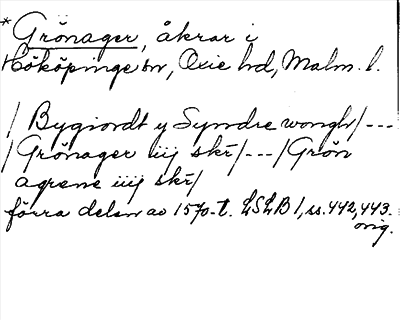 *Grönager, åkrar i
Hököpinge sn, Oxie hd, Malm. l.
/ Bygiordt y Syndre wongh/ ---
/ Grönager iiij skr̄/ --- / Grön
agrene iiij skr̄/
förra delen av 1570-t. LSLB 1, ss. 442, 443.
orig.